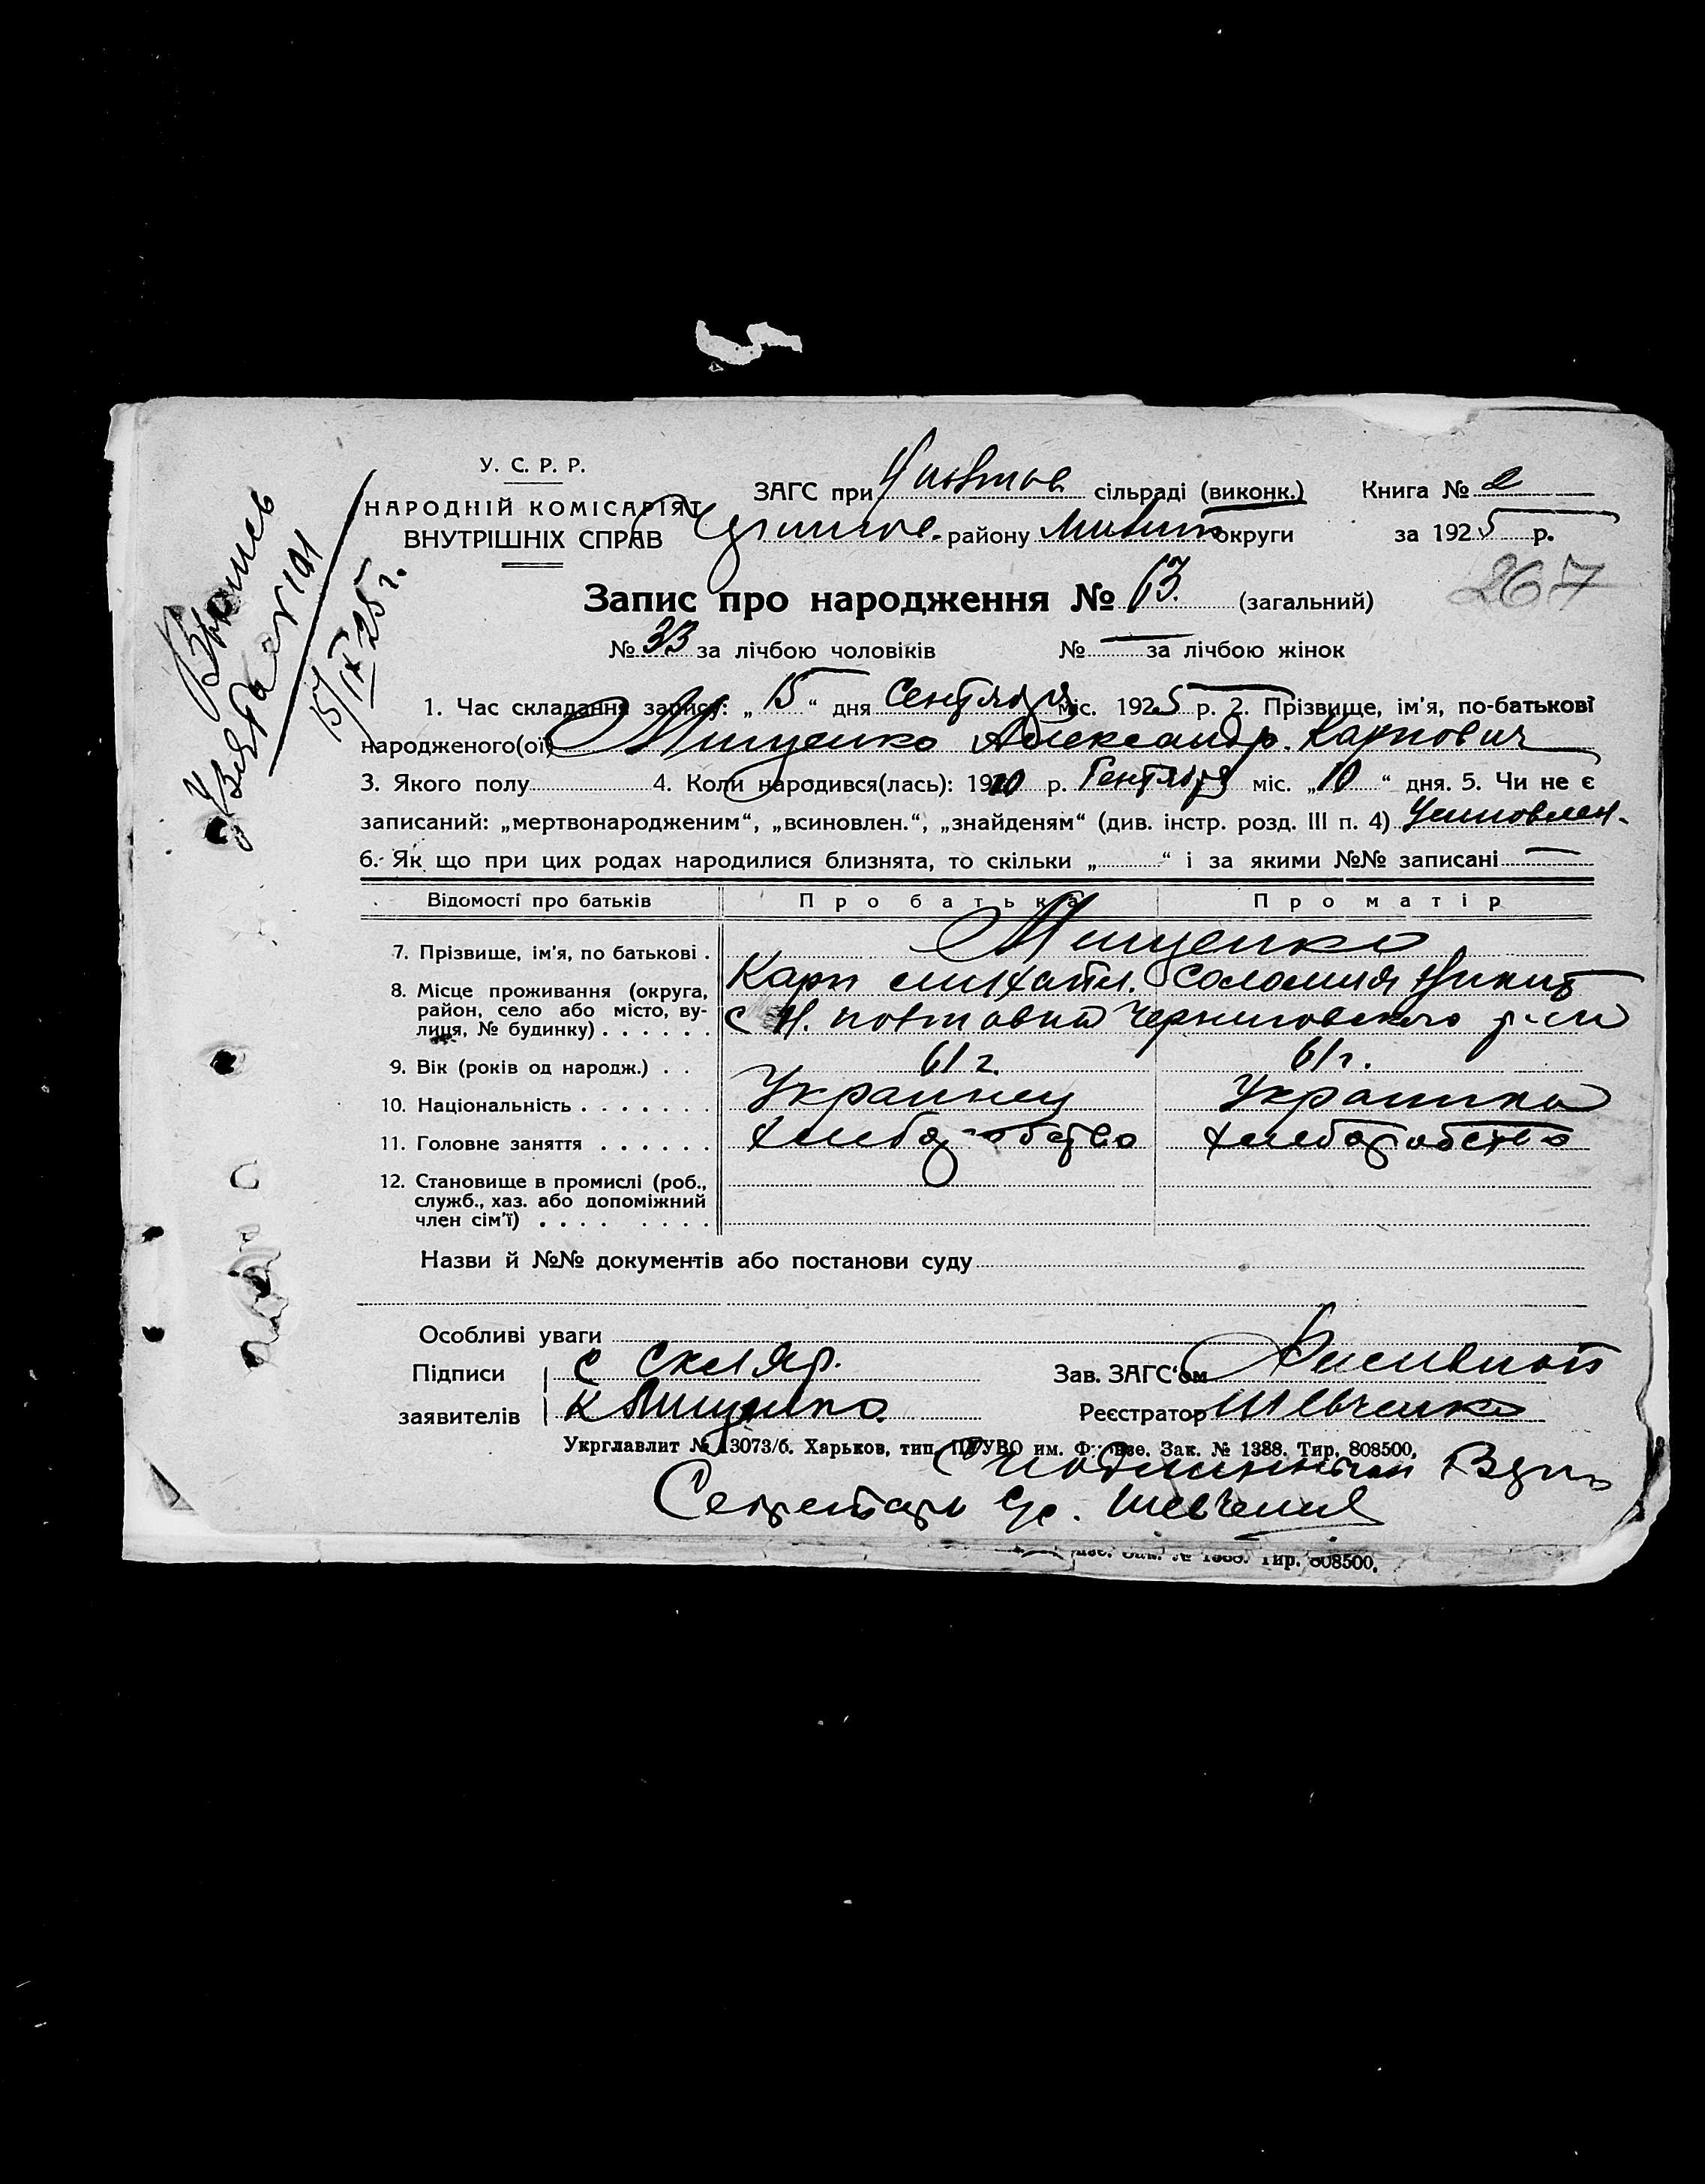 У. С. Р. Р.
НАРОДНІЙ КОМІСАРІЯТ
ВНУТРІШНІХ СПРАВ
ЗАГС при сільраді (виконк.) Книга № 2
району округи за 1925 р.
Запис про народження № 63. (загальний)
267
№ 33 за лічбою чоловіків № — за лічбою жінок
15/IX 25 г.
1. Час складання запису: „ 15 “ дня Сентября міс. 1925 р. 2. Прізвище, ім'я, по-батькові
народженого(ої) Мищенко Александр. Карпович
3. Якого полу 4. Коли народився(лась): 1910 р. Сентября міс. „ 10 “ дня. 5. Чи не є
записаний: „мертвонародженим“, „всиновлен.“, „знайденям“ (див. інстр. розд. III п. 4) Усиновлен.
6. Як що при цих родах народилися близнята, то скільки „ “ і за якими №№ записані —
Відомості про батьків Про батька Про матір
7. Прізвище, ім'я, по батькові . Мищенко
Карп Михайл. Соломия Никит
8. Місце проживання (округа,
район, село або місто, ву-
лиця, № будинку) . . . . . . с Н. Полтавка Черниговского р-на
9. Вік (років од народж.) . . 61 г. 61 г.
10. Національність . . . . . . . Украинец Украинка
11. Головне заняття . . . . . . хлеборобство хлеборобство
12. Становище в промислі (роб.,
служб., хаз. або допоміжний
член сім'ї) . . . . . . . .
Назви й №№ документів або постанови суду
Особливі уваги
Підписи С Скляр. Зав. ЗАГС'ом
заявителів К Мищенко Реєстратор Шевченко
Укрглавлит № 13073/б. Харьков, тип. ПУУВО им. Фрунзе. Зак. № 1388. Тир. 808500.
Секретарь Шевченко
Зак. № 1388. Тир. 808500.